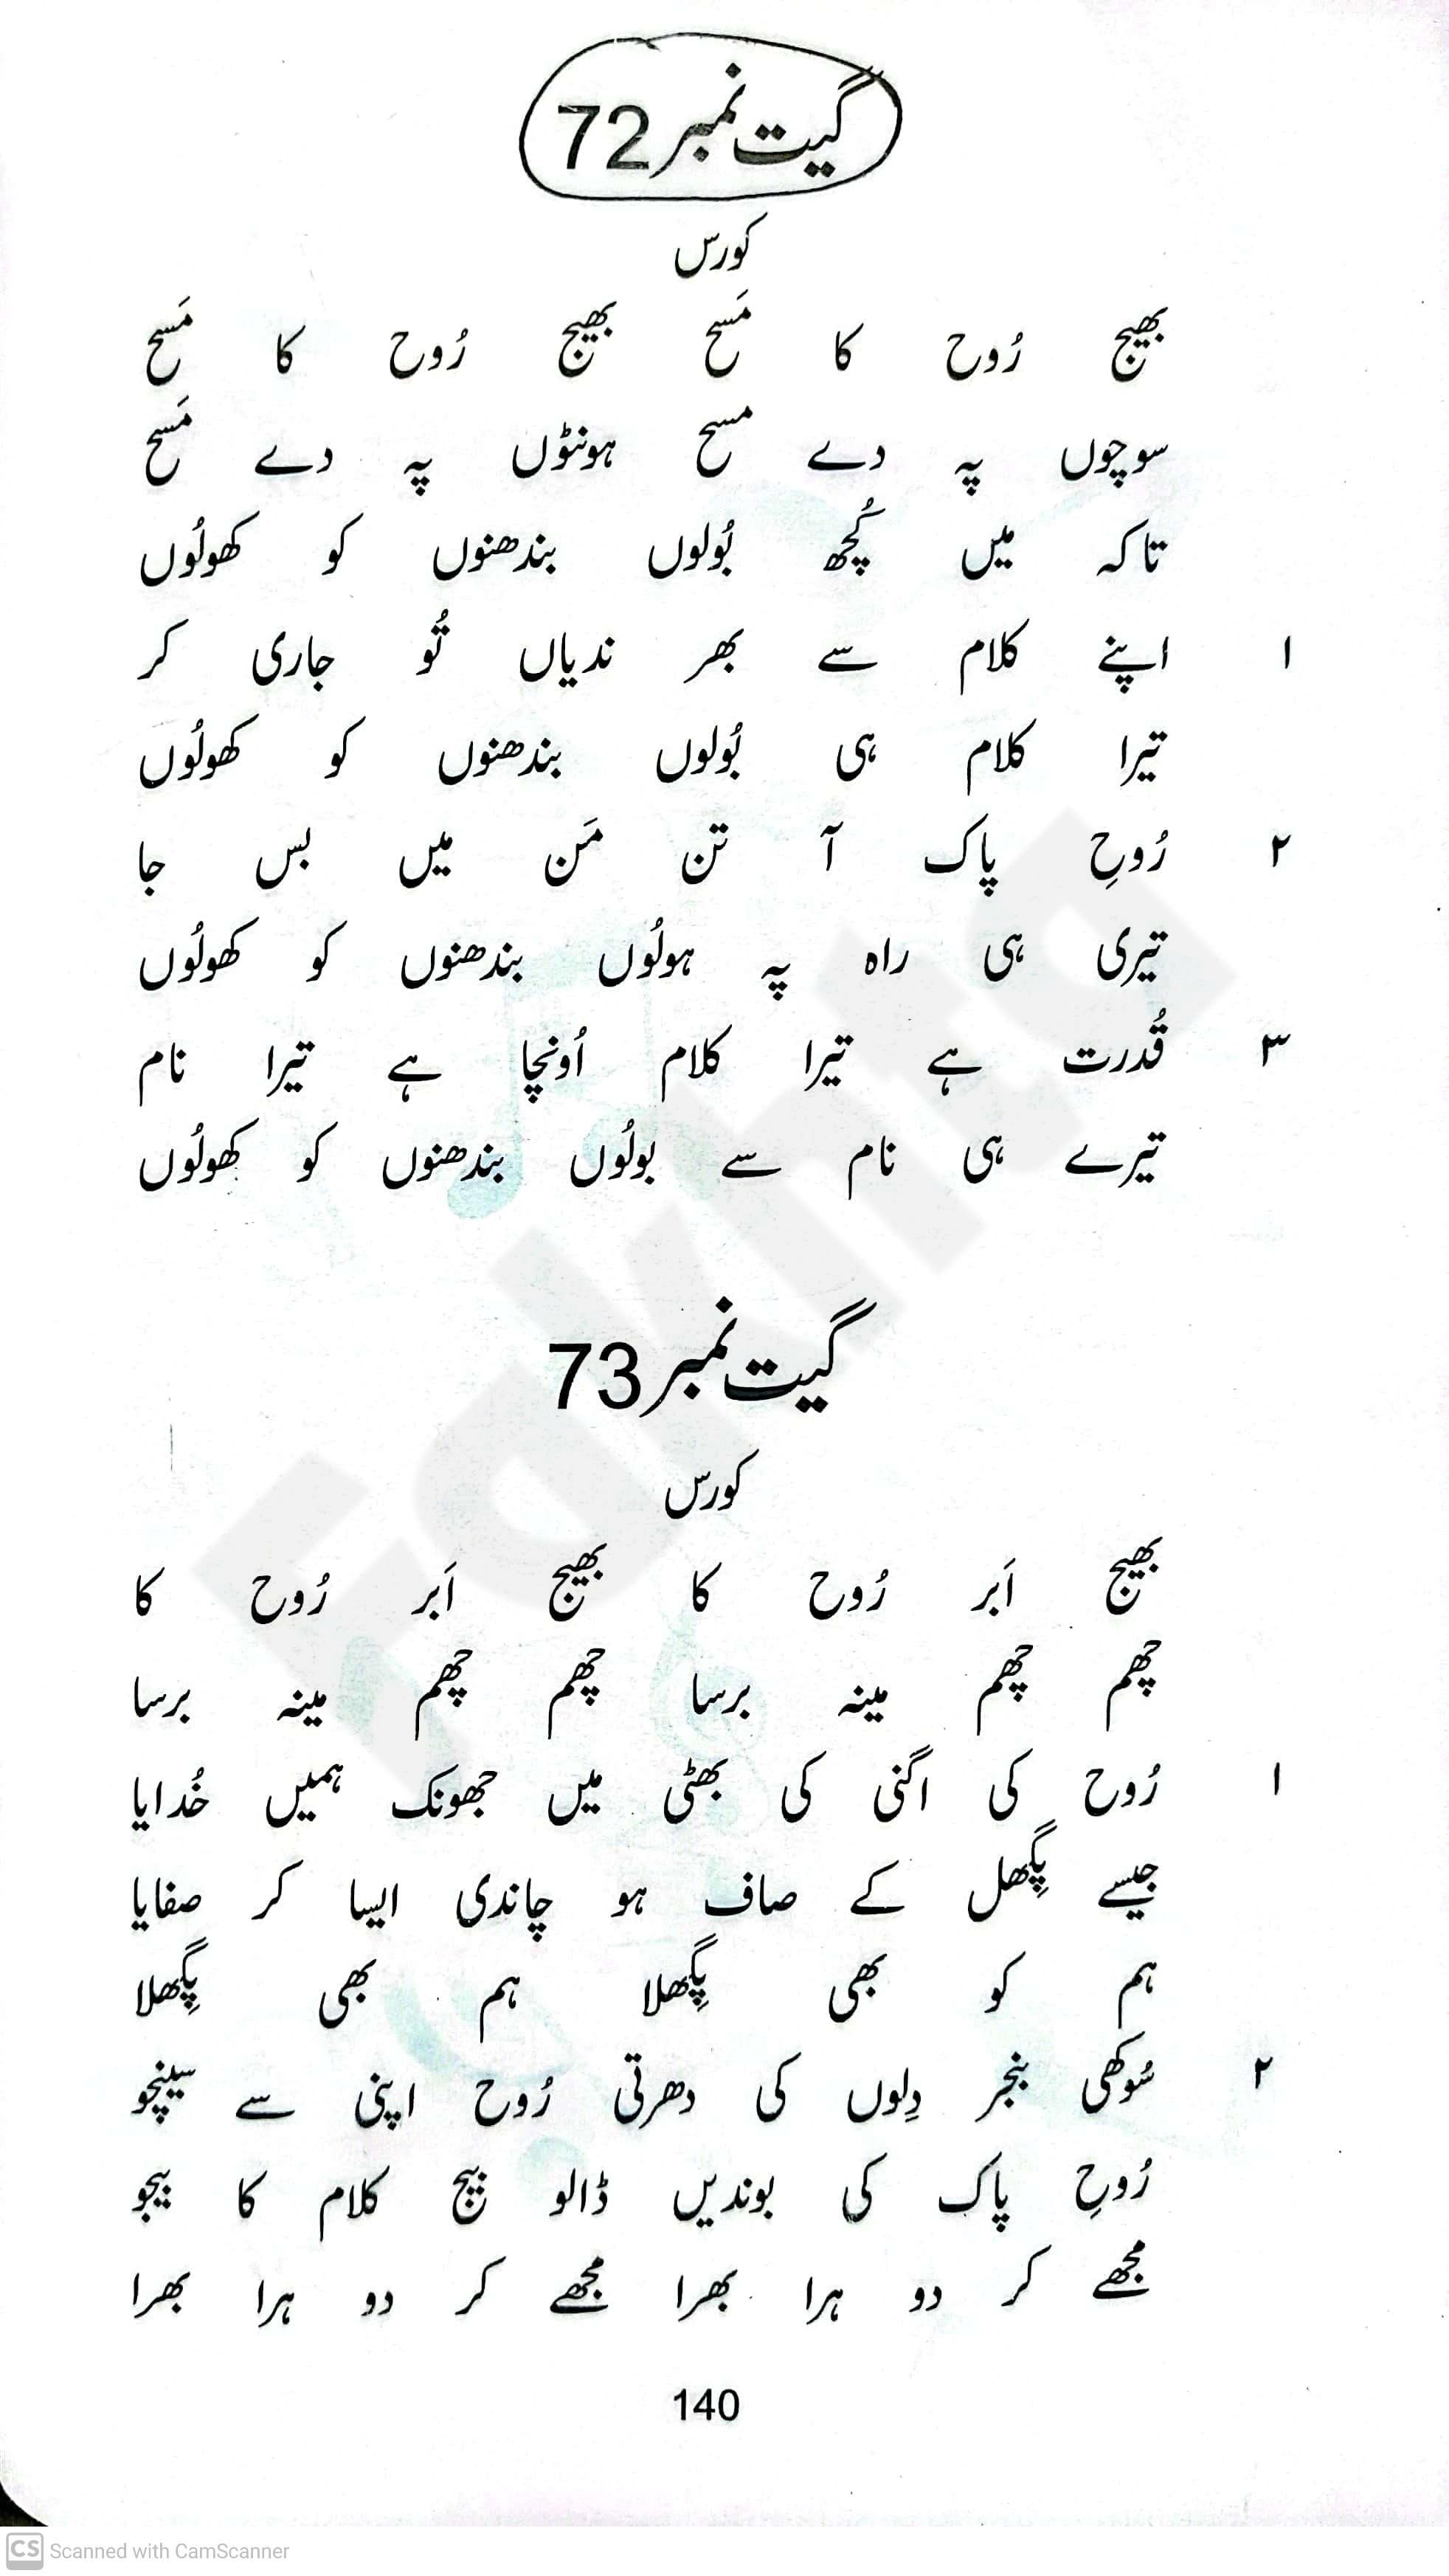 گیت نمبر 72
کورس
بھیج رُوح کا مَسح بھیج رُوح کا مَسح
سوچوں پہ دے مسح ہونٹوں پہ دے مَسح
تاکہ میں کُچھ بُولوں بندھنوں کو کھولُوں
۱ اپنے کلام سے بھر ندیاں تُو جاری کر
تیرا کلام ہی بُولوں بندھنوں کو کھولُوں
۲ رُوحِ پاک آ تن مَن میں بس جا
تیری ہی راہ پہ ہولُوں بندھنوں کو کھولُوں
۳ قُدرت ہے تیرا کلام اُونچا ہے تیرا نام
تیرے ہی نام سے بولُوں بندھنوں کو کھولُوں
گیت نمبر 73
کورس
بھیج اَبر رُوح کا بھیج اَبر رُوح کا
چھم چھم مینہ برسا چھم چھم مینہ برسا
۱ رُوح کی اگنی کی بھٹی میں جھونک ہمیں خُدایا
جیسے پِگھل کے صاف ہو چاندی ایسا کر صفایا
ہم کو بھی پِگھلا ہم بھی پِگھلا
۲ سُوکھی بنجر دِلوں کی دھرتی رُوح اپنی سے سینچو
رُوحِ پاک کی بوندیں ڈالو بیج کلام کا بیجو
مجھے کر دو ہرا بھرا مجھے کر دو ہرا بھرا
140
Fakhta
CS Scanned with CamScanner